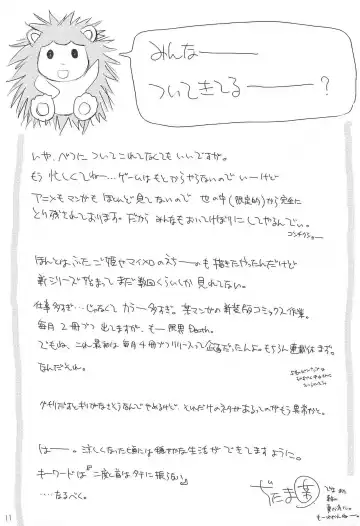 みんなーーー
ついてきてるーーー？
いや、べつについてこれてなくてもいいですが。
もう忙しくてねー…ゲームはもとからやらないのでいーけど
アニメもマンガもほとんど見てないので 世の中(限定的)から完全に
とり残されております。だから みんなもおいてけぼりにしてやるんでい。
コンチクショー。
ほんとはふたご姫やマイメロのえろーいのも描きたかったんだけど
新シリーズ始まってまだ数回くらいしか見れてない。
仕事多すぎ…じゃなくてカラー多すぎ。某マンガの新装版コミックス作業。
毎月2冊ずつ出てますが、もー限界Death。
でもね、これ最初は毎月4冊ずつリリースって企画だったんよ。もちろん連載休まず。
なんだそれ。
グチりだすとキリがなさそうなんでやめるけど、それだけのネタがあるってのがもう異常かと。
はーー。涼しくなった頃には穏やかな生活ができてますように。
キーワードは『二度と首はタテに振らない』
……なるべく。
11